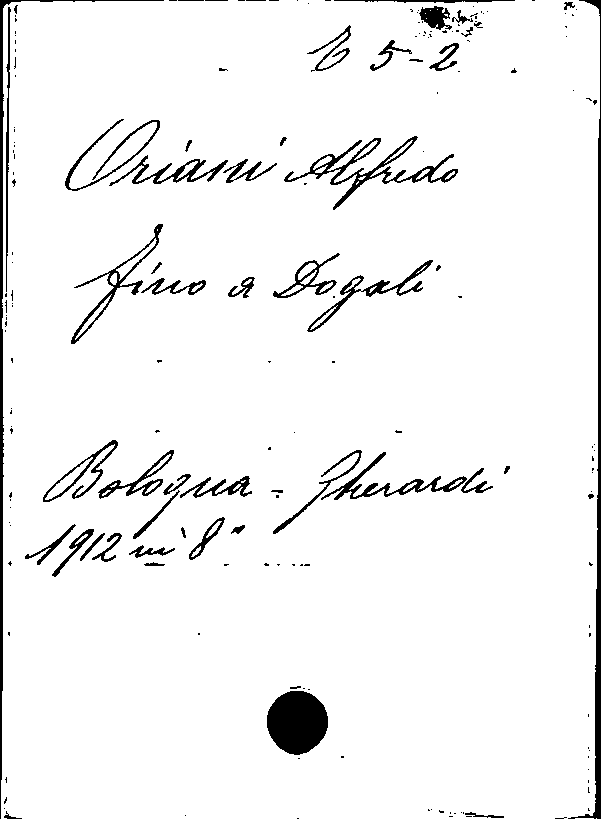 E 5-2
Oriani Alfredo
Fino a Dogali
Bologna - Gherardi
1912 in 8°